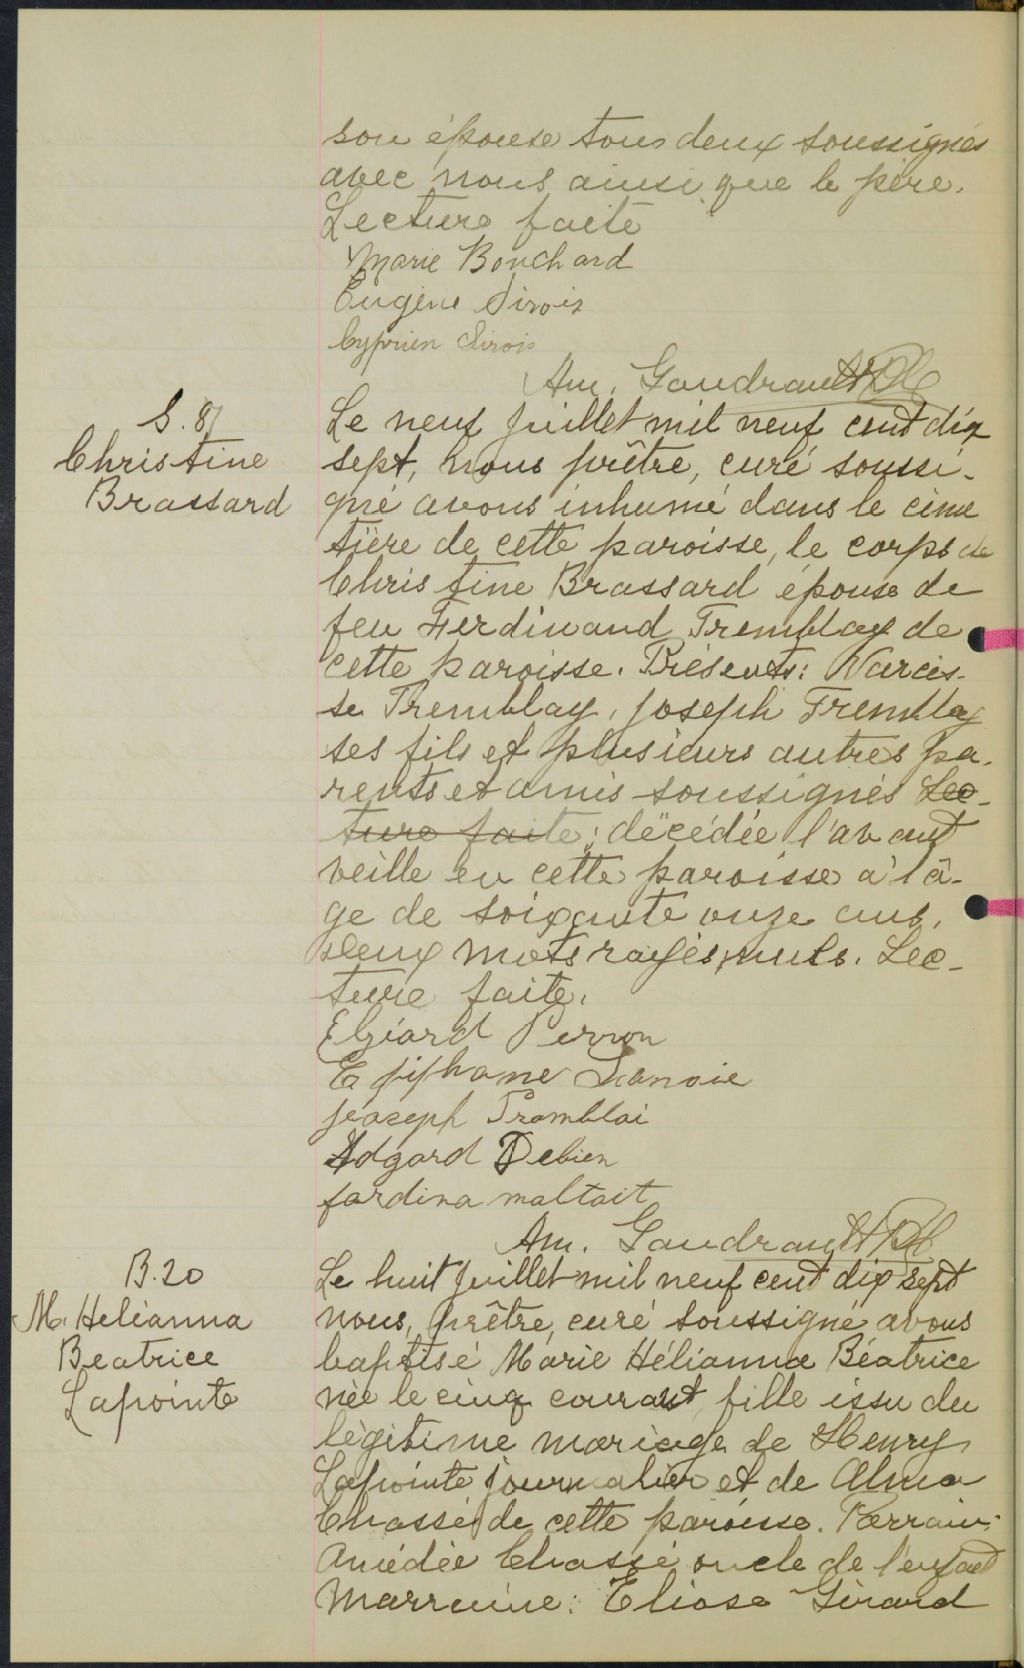 son épouse tous deux soussignés
avec nous ainsi que le père.
Lecture faite
Marie Bouchard
Eugène Sirois
Cyprien Sirois
Am. Gaudrault Ptre
S. 8
Christine
Brassard
Le neuf juillet mil neuf cent dix
sept, nous prêtre, curé soussi-
gné avons inhumé dans le cime
tière de cette paroisse, le corps de
Christine Brassard épouse de
feu Ferdinand Tremblay de
cette paroisse. Présents: Narcis-
se Tremblay, Joseph Tremblay
ses fils et plusieurs autres pa-
rents et amis soussignés Lec-
ture faite; décédée l'avant
veille en cette paroisse a l'â-
ge de soixante onze ans.
Deux mots rayés nuls. Lec-
ture faite.
Elziard Perron
Epiphane Lavoie
Joseph Tramblai
Adgard Debien
fardina maltait
Am. Gaudrault Ptre
B. 20
M. Helianna
Beatrice
Lapointe
Le huit juillet mil neuf cent dix sept
nous, prêtre, curé soussigné avons
baptisé Marie Hélianna Béatrice
née le cinq courant, fille issu du
légitime mariage de Henry
Lapointe journalier et de Alma
Chassé de cette paroisse. Parrain:
Amédée Chassé oncle de l'enfant
Marraine: Eliosa Girard